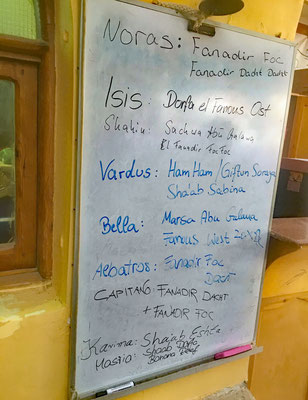 Noras: Fanadir Foc
Fanadir Dacht Dacht
Isis: Dorfa el Fanous Ost
Shahin: Sachwa Abu Galawa
El Fanadir Foc Foc
Vardus: Ham Ham / Giftun Soraya
Sha'ab Sabina
Bella: Marsa Abu Galawa
Fanous West
Albatros: Fanadir Foc
Dacht
CAPITANO: FANADIR DACHT
+ FANADIR FOC
Karima: Shajab Eshta
Shaab Dorfa
Banana Reef